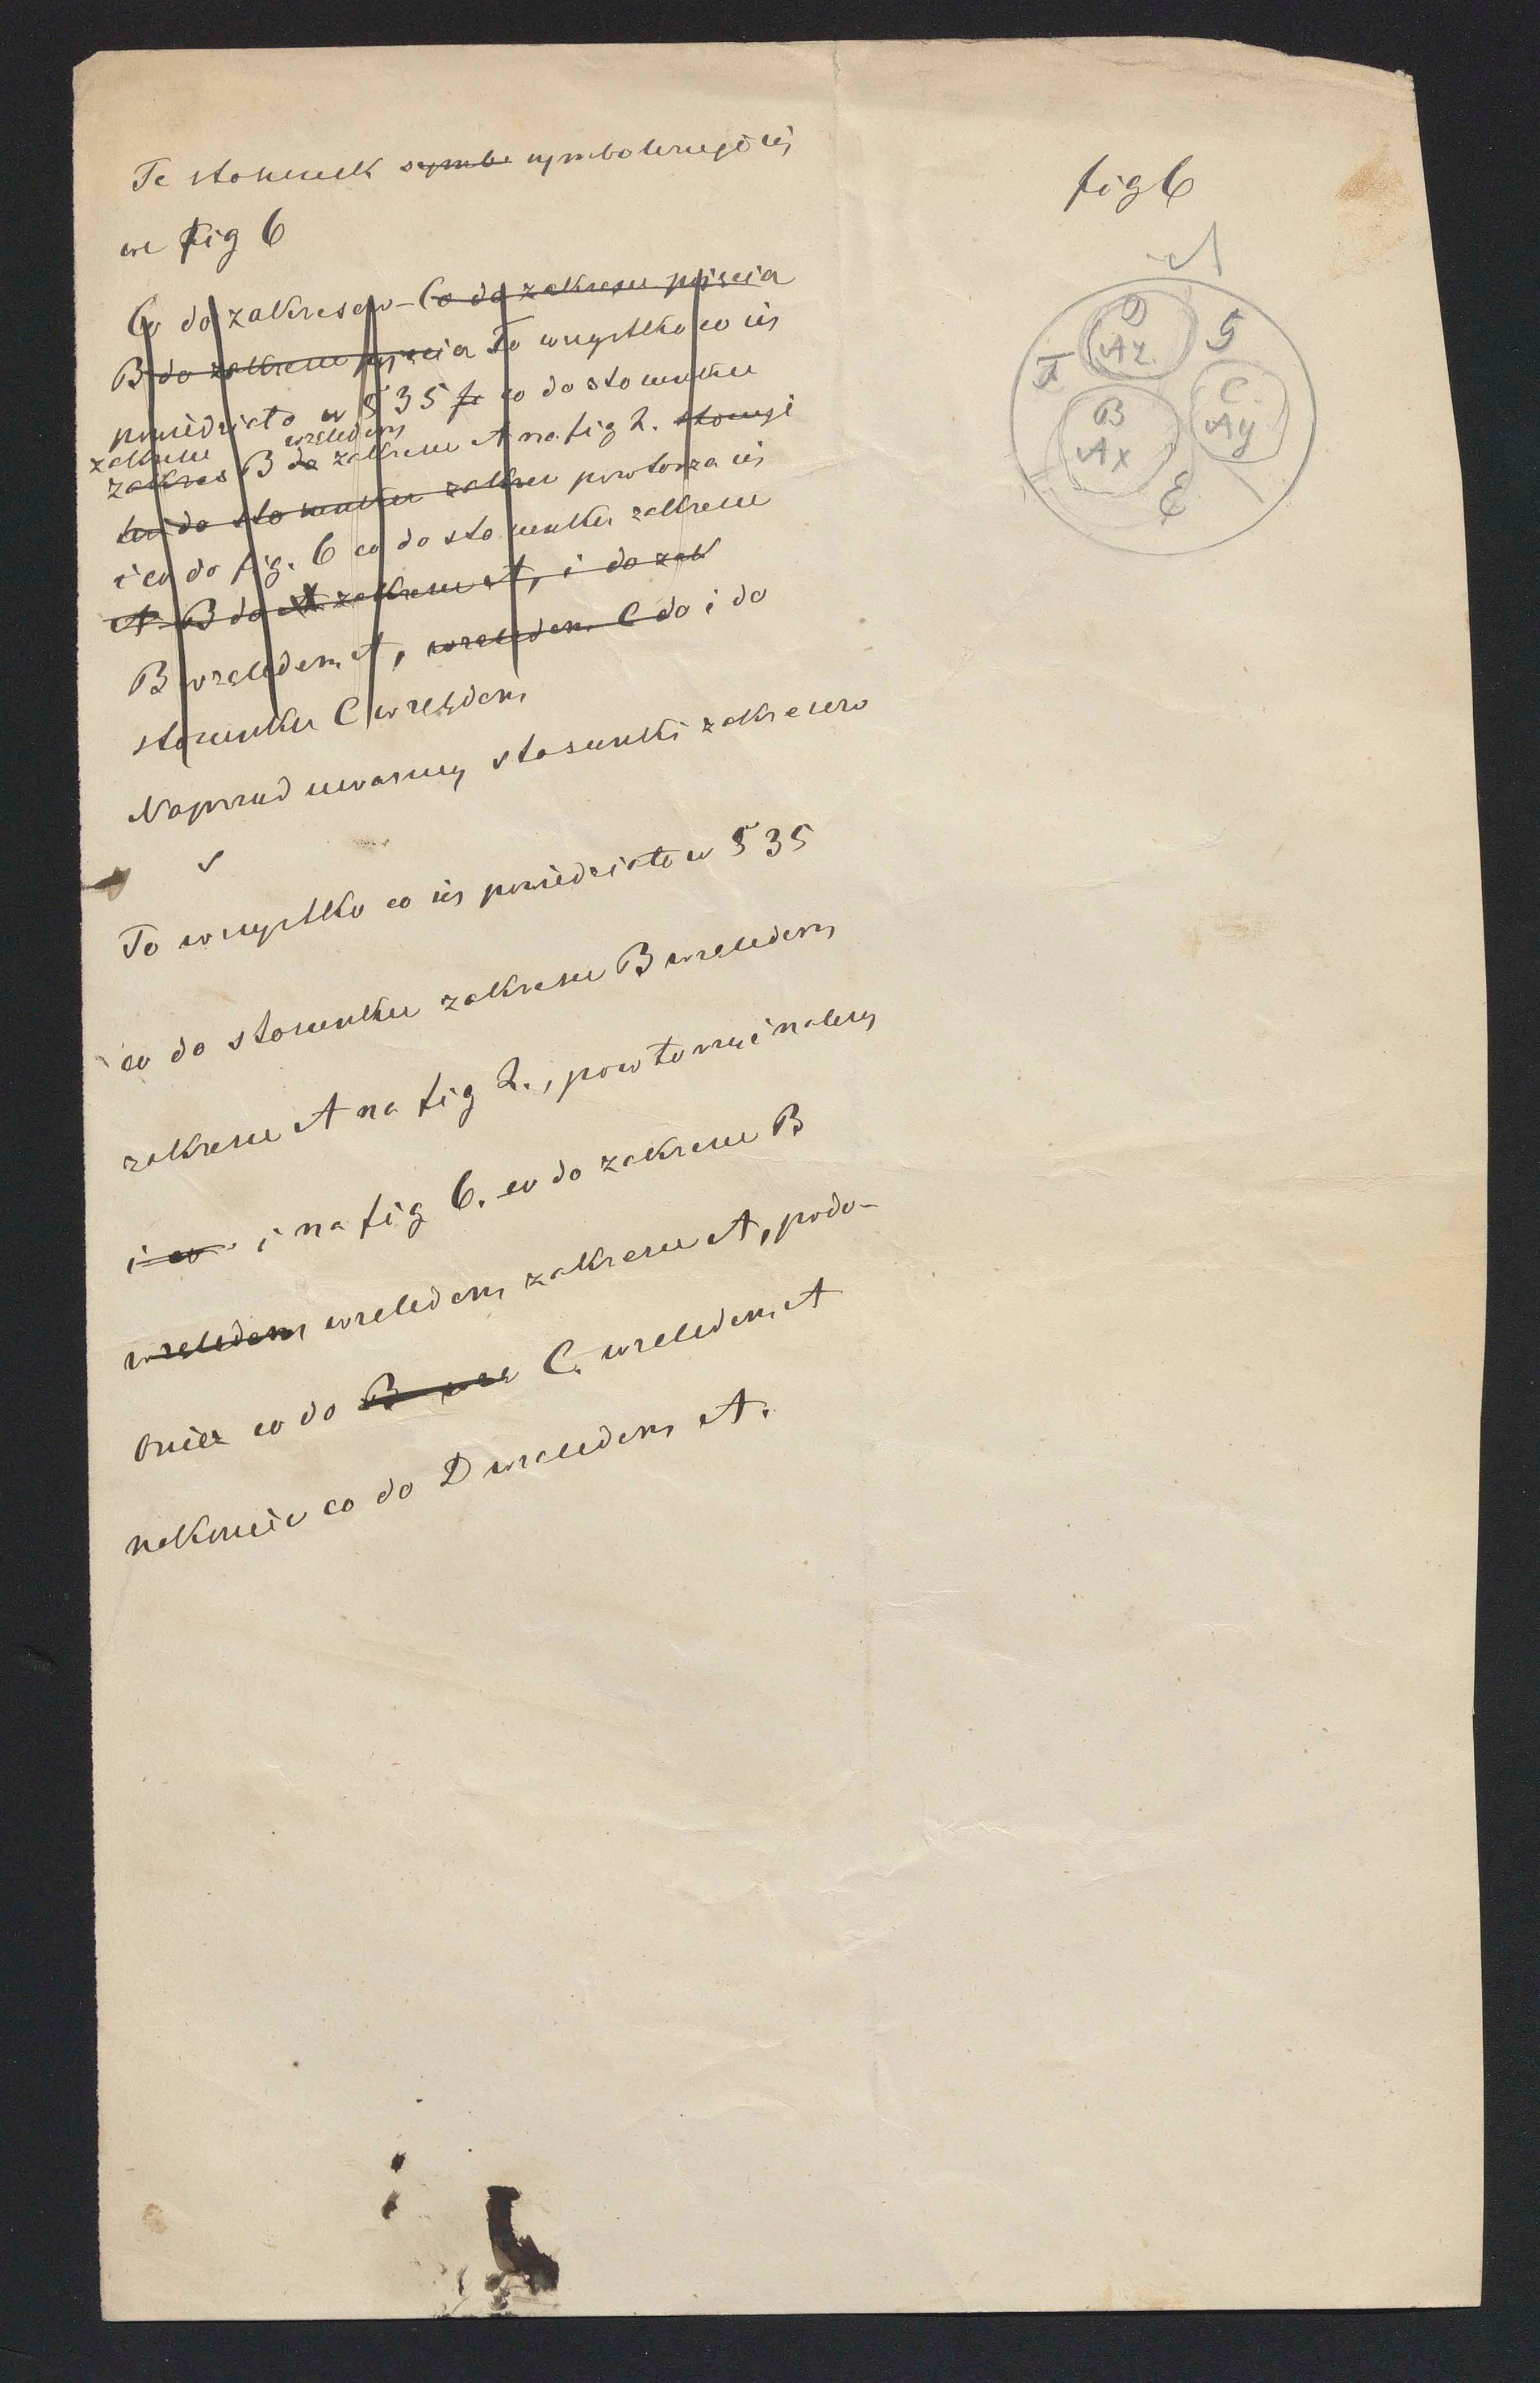 Te stosunek symbo symbolizuje się
we fig 6
Co do zakresów - Co do zakresu pojęcia
B do zakresu pojęcia To wszystko co się
powiedziało w § 35 co do stosunku
zakresu względem
zakres B do zakresu A na fig 2. stosuje
się do stosunku zakresu powtarza się
i co do fig. 6 co do stosunku zakresu
A B do A zakresu A, i do zak
B względem A, względem C do i do
stosunku C względem
Naprzud uważmy stosunki zakresów
To wszystko co się powiedziało w § 35
co do stosunku zakresu B względem
zakresu A na fig 2., powtorzyć należy
i co i na fig 6. co do zakresu B
względem względem zakresu A, podo-
bnież co do B wzg C. względem A
nakoniec co do D względem A.
fig 6
A
D
Az
G
F
C
Ay
B
Ax
E